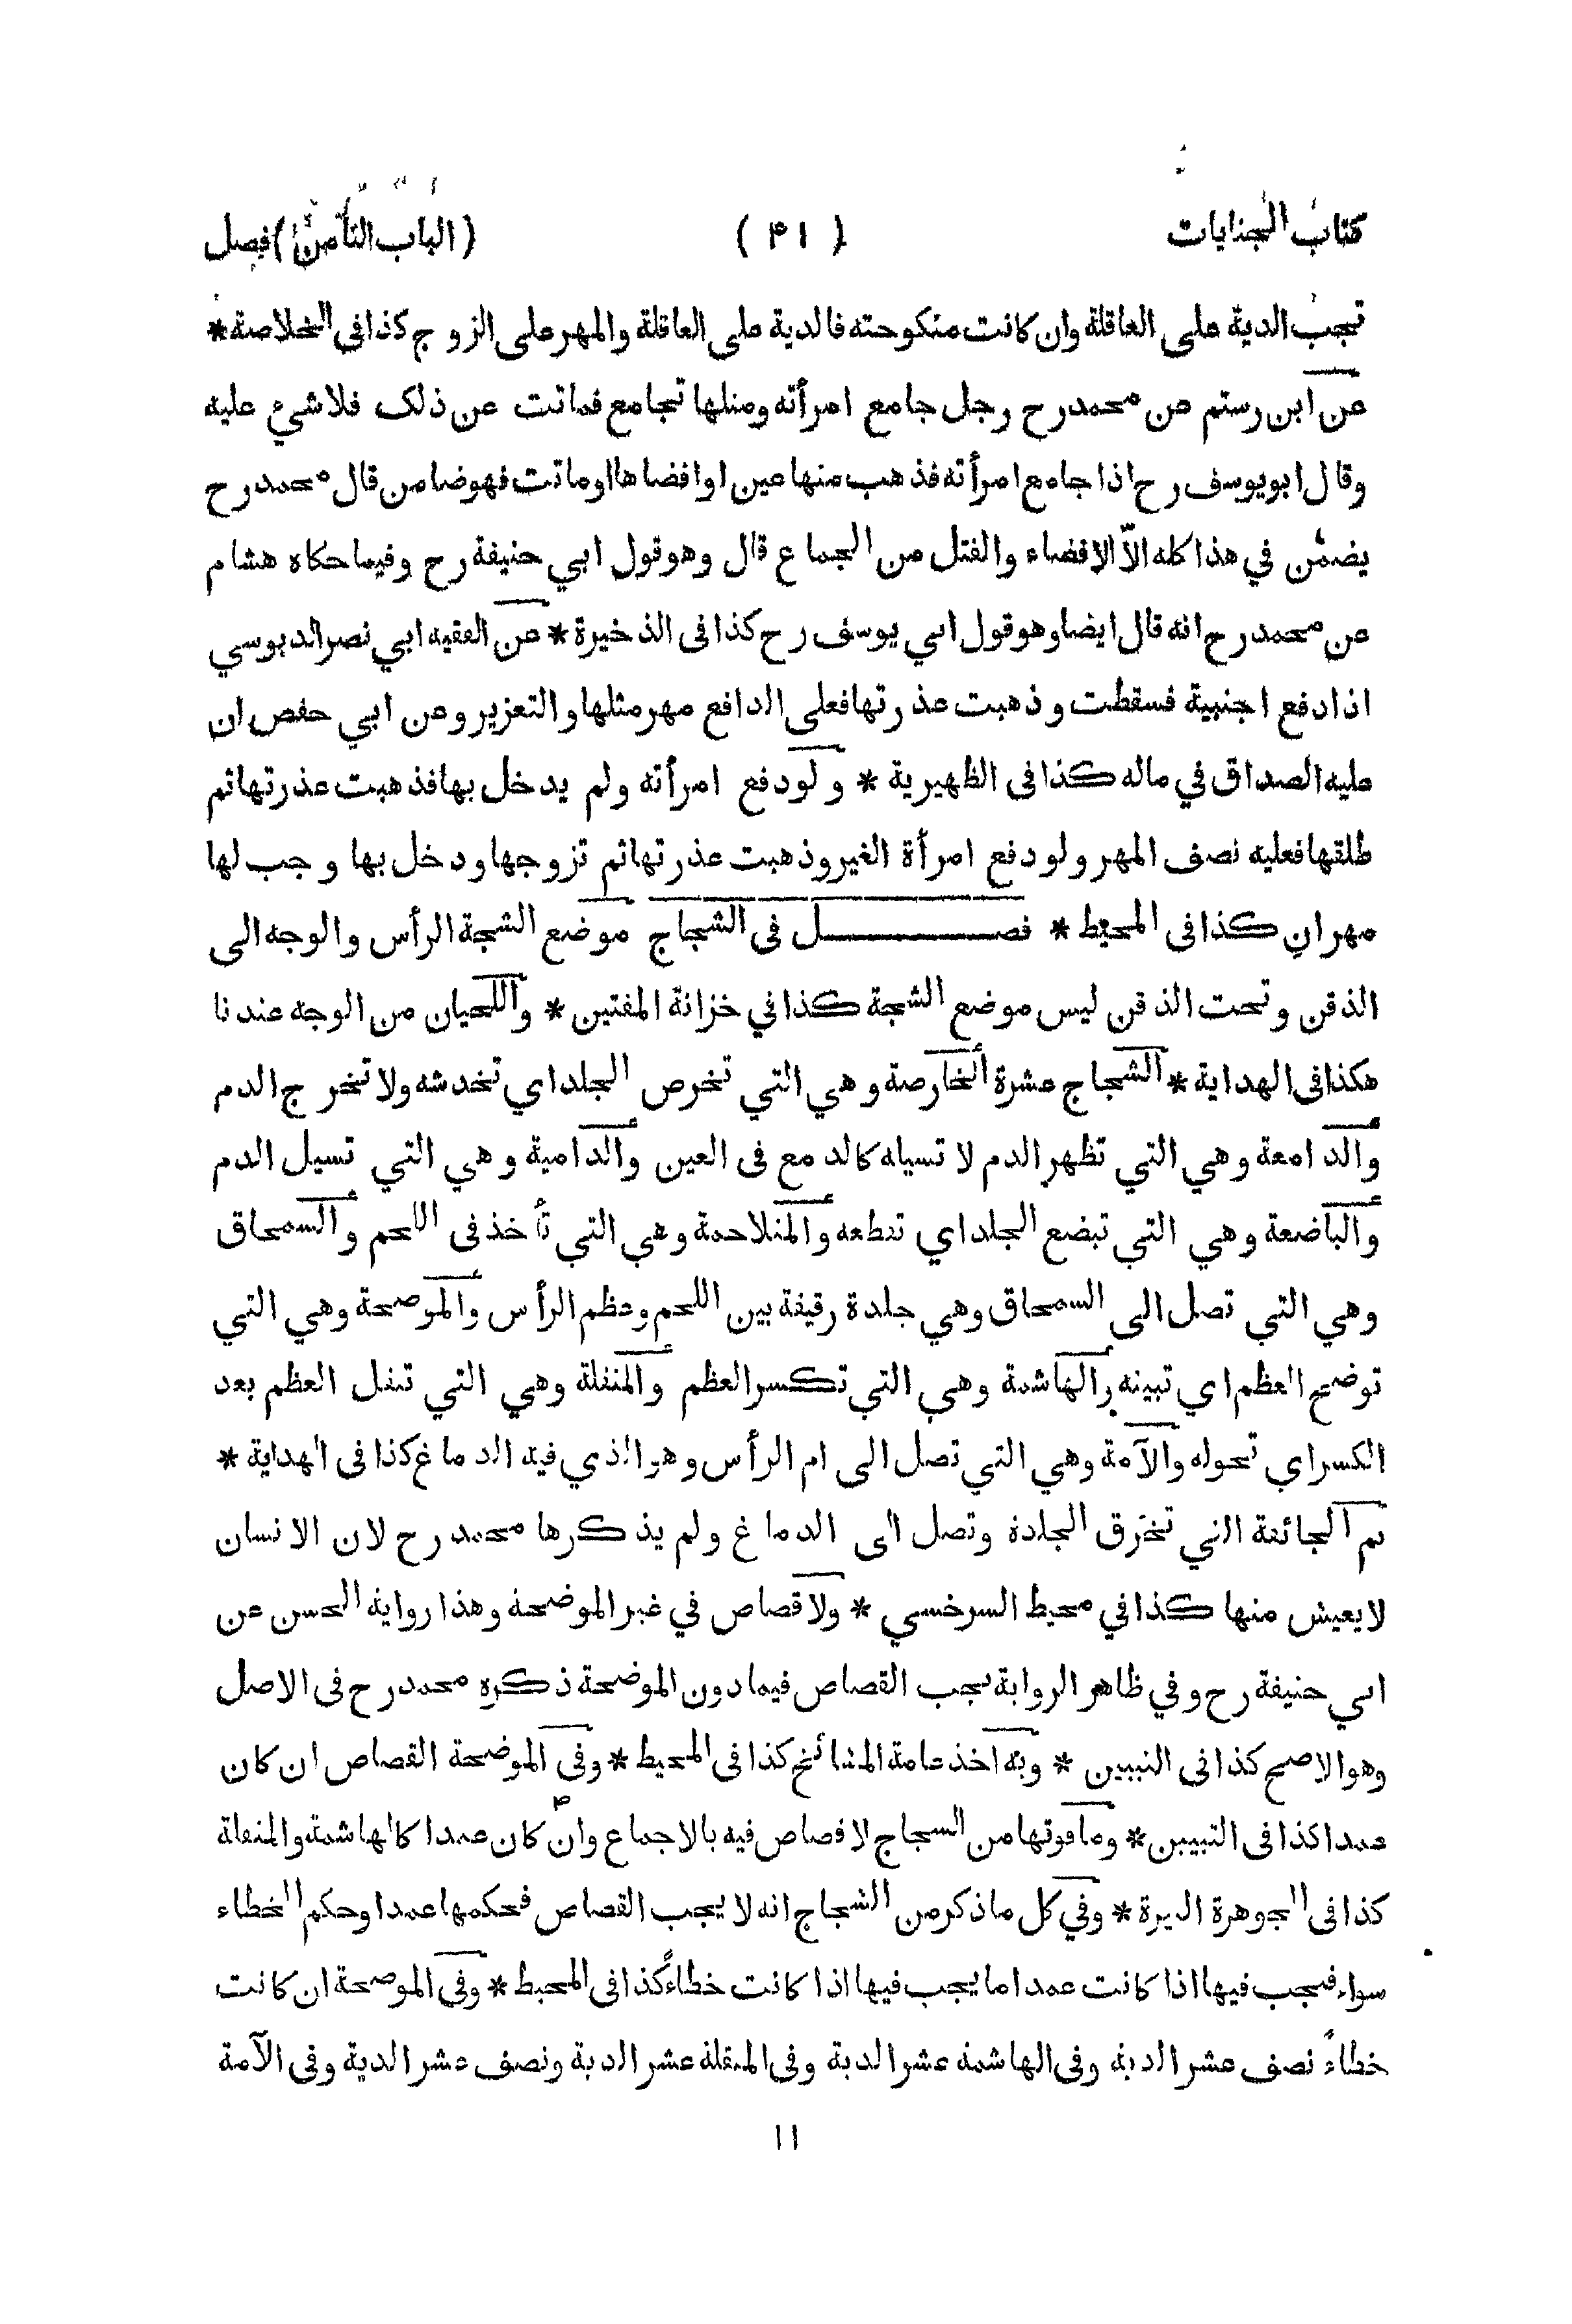 كتاب الجنايات ( ۴۱ ) ( الباب الثامن ) فصل
تجب الدية على العاقلة وان كانت منكوحته فالدية على العاقلة والمهر على الزوج كذا فى الخلاصة *
عن ابن رستم عن محمد رح رجل جامع امرأته ومثلها تجامع فماتت عن ذلك فلا شيء عليه
وقال ابو يوسف رح اذا جامع امرأته فذهب منها عين او افضاها او ماتت فهو ضامن قال محمد رح
يضمن في هذا كله الاّ الافضاء والقتل من الجماع قال وهو قول ابي حنيفة رح وفيما حكاه هشام
عن محمد رح انه قال ايضا وهو قول ابي يوسف رح كذا فى الذخيرة * عن الفقيه ابي نصر الدبوسي
اذا دفع اجنبية فسقطت وذهبت عذرتها فعلى الدافع مهر مثلها والتعزير وعن ابي حفص ان
عليه الصداق في ماله كذا فى الظهيرية * ولو دفع امرأته ولم يدخل بها فذهبت عذرتها ثم
طلقها فعليه نصف المهر ولو دفع امرأة الغير وذهبت عذرتها ثم تزوجها ودخل بها وجب لها
مهران كذا فى المحيط * فصل فى الشجاج موضع الشجة الرأس والوجه الى
الذقن وتحت الذقن ليس موضع الشجة كذا في خزانة المفتين * واللحيان من الوجه عندنا
هكذا فى الهداية * الشجاج عشرة الخارصة وهي التي تخرص الجلد اي تخدشه ولا تخرج الدم
والدامعة وهي التي تظهر الدم لا تسيله كالدمع فى العين والدامية وهي التي تسيل الدم
والباضعة وهي التي تبضع الجلد اي تقطعه والمتلاحمة وهي التي تأخذ فى اللحم والسمحاق
وهي التي تصل الى السمحاق وهي جلدة رقيقة بين اللحم وعظم الرأس والموضحة وهي التي
توضح العظم اي تبينه والهاشمة وهي التي تكسر العظم والمنقلة وهي التي تنقل العظم بعد
الكسر اي تحوله والآمة وهي التي تصل الى ام الرأس وهو الذي فيه الدماغ كذا فى الهداية *
ثم الجائفة التي تخرق الجلدة وتصل الى الدماغ ولم يذكرها محمد رح لان الانسان
لا يعيش منها كذا في محيط السرخسي * ولا قصاص في غير الموضحة وهذا رواية الحسن عن
ابي حنيفة رح وفي ظاهر الرواية يجب القصاص فيما دون الموضحة ذكره محمد رح فى الاصل
وهو الاصح كذا فى التبيين * وبه اخذ عامة المشائخ كذا فى المحيط * وفى الموضحة القصاص ان كان
عمدا كذا فى التبيين * وما فوقها من الشجاج لا قصاص فيه بالاجماع وان كان عمدا كالهاشمة والمنقلة
كذا فى الجوهرة النيرة * وفي كل ما ذكر من الشجاج انه لا يجب القصاص فحكمها عمدا وحكم الخطاء
سواء فيجب فيها اذا كانت عمدا ما يجب فيها اذا كانت خطاءً كذا فى المحيط * وفى الموضحة ان كانت
خطاءً نصف عشر الدية وفى الهاشمة عشر الدية وفى المنقلة عشر الدية ونصف عشر الدية وفى الآمة
۱۱